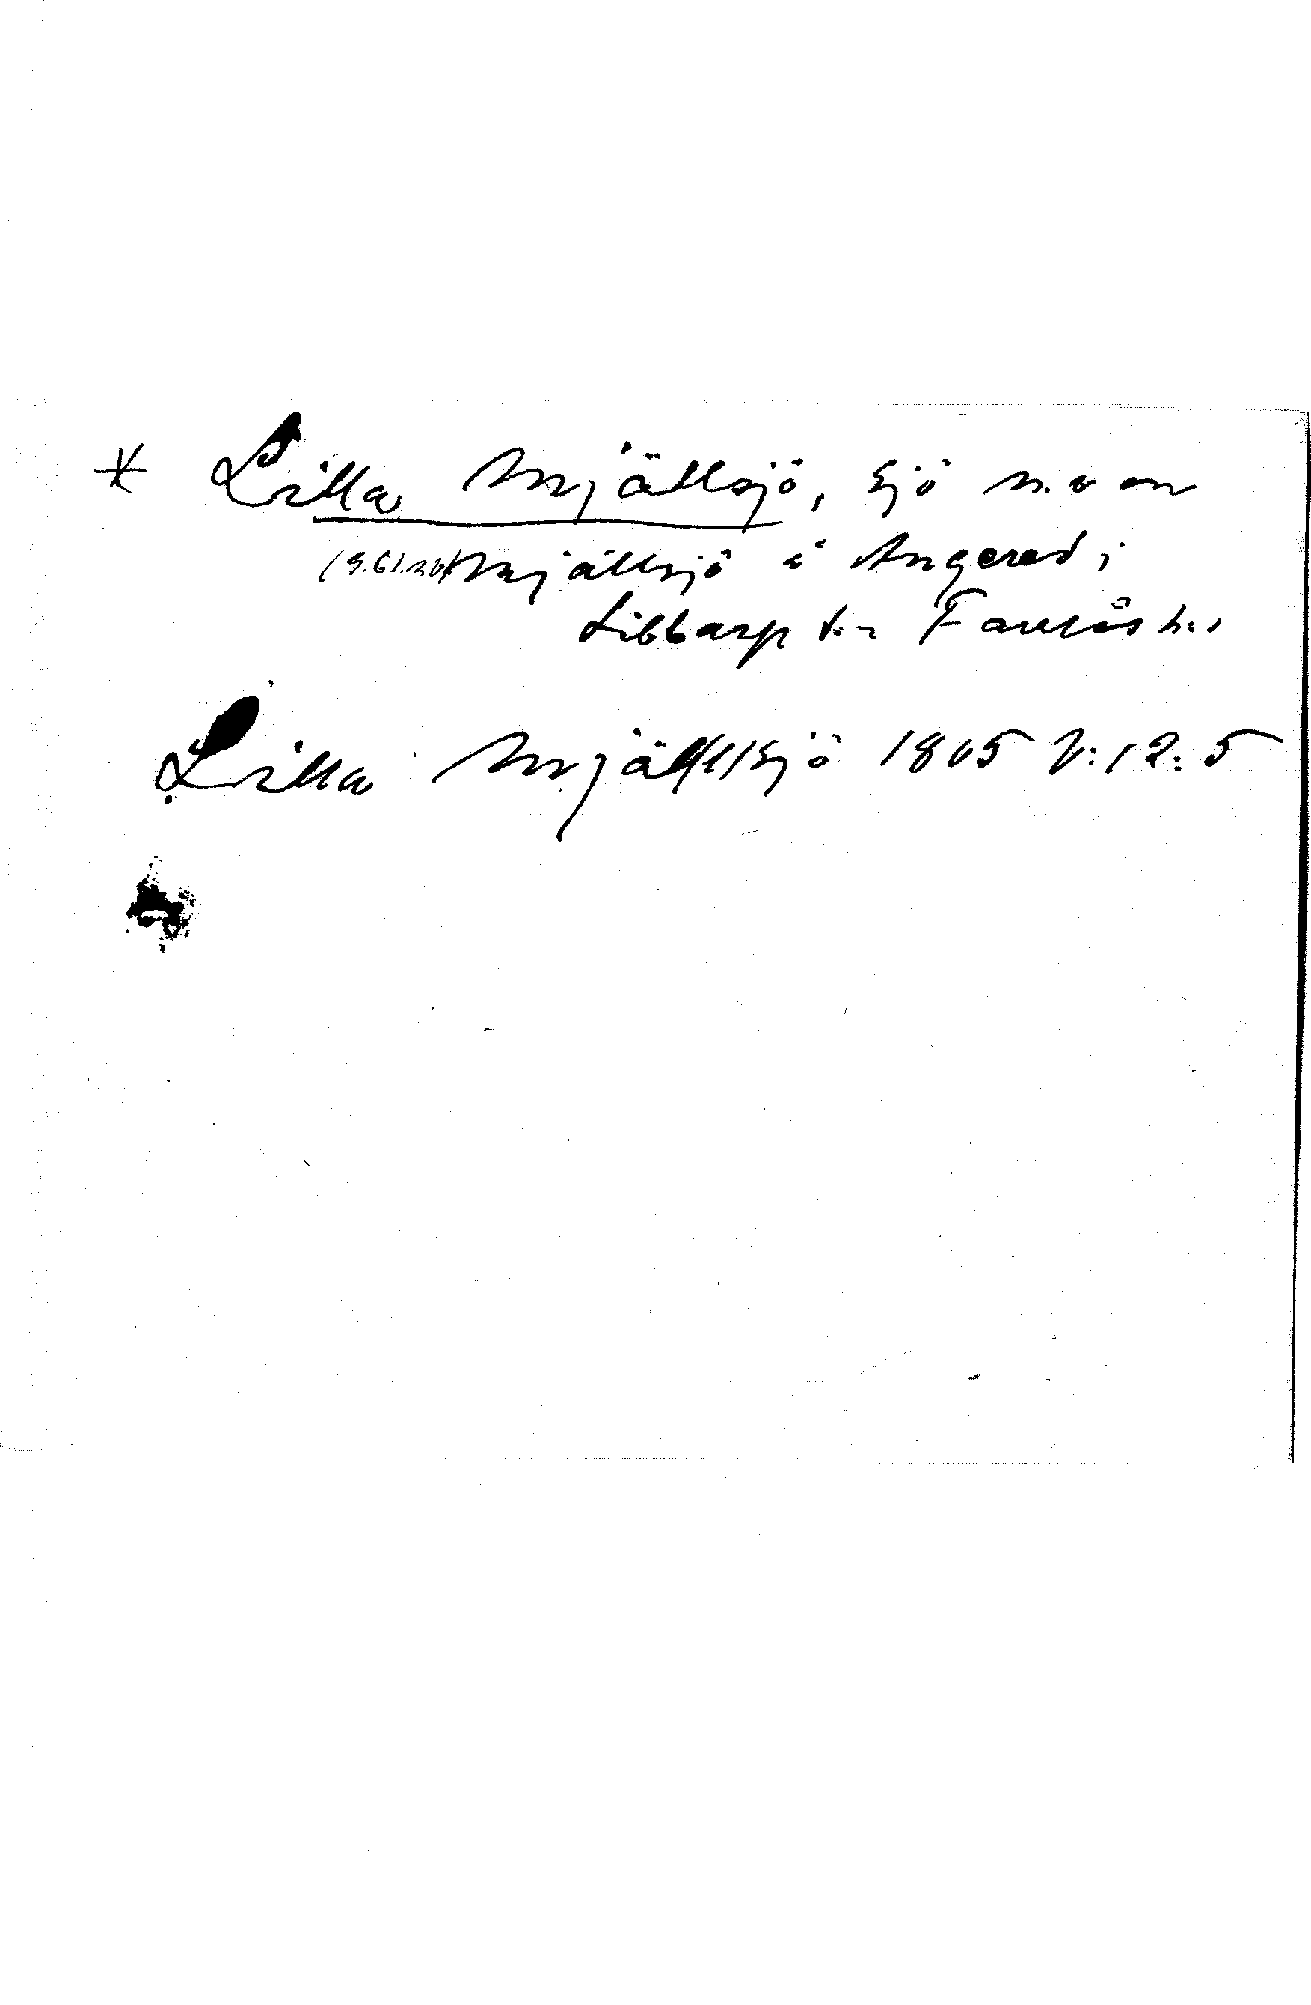 * Lilla Mjällsjö, sjö n. v om
Mjällsjö i Angered i
Libbarp sn Faurås hd
Lilla Mjäll(l)sjö 1805 V:12:5